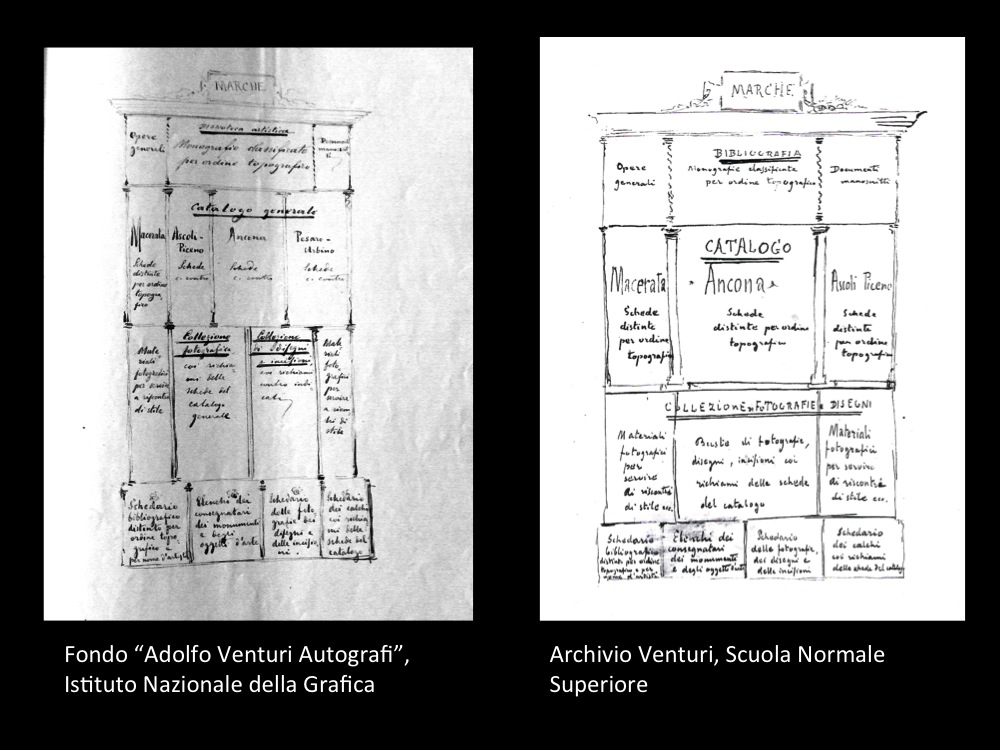 MARCHE
Opere
generali
Monografie classificate
per ordine topografico
Catalogo generale
Macerata
Schede
distinte
per ordine
topogra
fico
Ascoli-
Piceno
Schede
c. contro
Ancona
Schede
c. contro
Pesaro-
Urbino
Schede
c. contro
Mate
riali
fotografici
per servire
a riscontri
di stile
Collezione
fotografica
coi richia
mi delle
schede del
catalogo
generale
Collezione
di disegni
e incisioni,
coi richiami
contro indi
cati
Mate
riali
foto
grafici
per
servire
a riscon
tri di
stile
Schedario
bibliografico
distinto per
ordine topo
grafico e
per nome d'artisti
Elenchi dei
consegnatari
dei monumenti
e degli
oggetti d'arte
Schedario
delle foto
grafie dei
disegni e
delle incisio
ni.
Schedario
dei calchi
coi richia
mi delle
schede del
catalogo
MARCHE
Opere
generali
BIBLIOGRAFIA
Monografie classificate
per ordine topografico
Documenti
manoscritti
CATALOGO
Macerata
Schede
distinte
per ordine
topografico
Ancona
Schede
distinte per ordine
topografico
Ascoli Piceno
Schede
distinte
per ordine
topografico
COLLEZIONE FOTOGRAFIE e DISEGNI
Materiali
fotografici
per
servire
di riscontri
di stile ecc.
Buste di fotografie,
disegni, incisioni coi
richiami delle schede
del catalogo
Materiali
fotografici
per servire
di riscontri
di stile ecc.
Schedario
bibliografico
distinto per ordine
topografico e per
nome d'artisti
Elenchi dei
consegnatari
dei monumenti
e degli oggetti d'arte
Schedario
delle fotografie,
dei disegni e
delle incisioni
Schedario
dei calchi
coi richiami
delle schede del catalogo
Fondo “Adolfo Venturi Autografi”,
Istituto Nazionale della Grafica
Archivio Venturi, Scuola Normale
Superiore